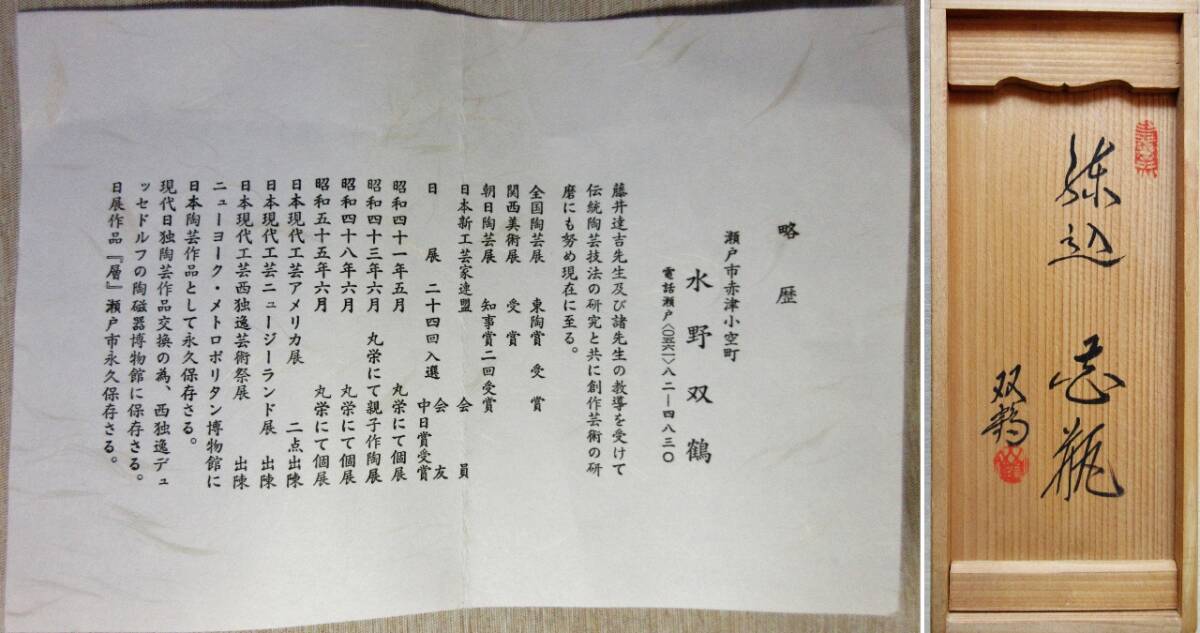 略歴
瀬戸市赤津小空町
水野双鶴
電話瀬戸〈〇五六一〉八二―四八三〇
藤井達吉先生及び諸先生の教導を受けて
伝統陶芸技法の研究と共に創作芸術の研
磨にも努め現在に至る。
全国陶芸展 東陶賞 受賞
関西美術展 受賞
朝日陶芸展 知事賞二回受賞
日本新工芸家連盟 会員
日展 二十四回入選 会友
中日賞受賞
昭和四十一年五月 丸栄にて個展
昭和四十三年六月 丸栄にて親子作陶展
昭和四十八年六月 丸栄にて個展
昭和五十五年六月 丸栄にて個展
日本現代工芸アメリカ展 二点出陳
日本現代工芸ニュージーランド展 出陳
日本現代工芸西独逸芸術祭展 出陳
ニューヨーク・メトロポリタン博物館に
日本陶芸作品として永久保存さる。
現代日独陶芸作品交換の為、西独逸デュ
ッセドルフの陶磁器博物館に保存さる。
日展作品『層』瀬戸市永久保存さる。
練込 花瓶
双鶴